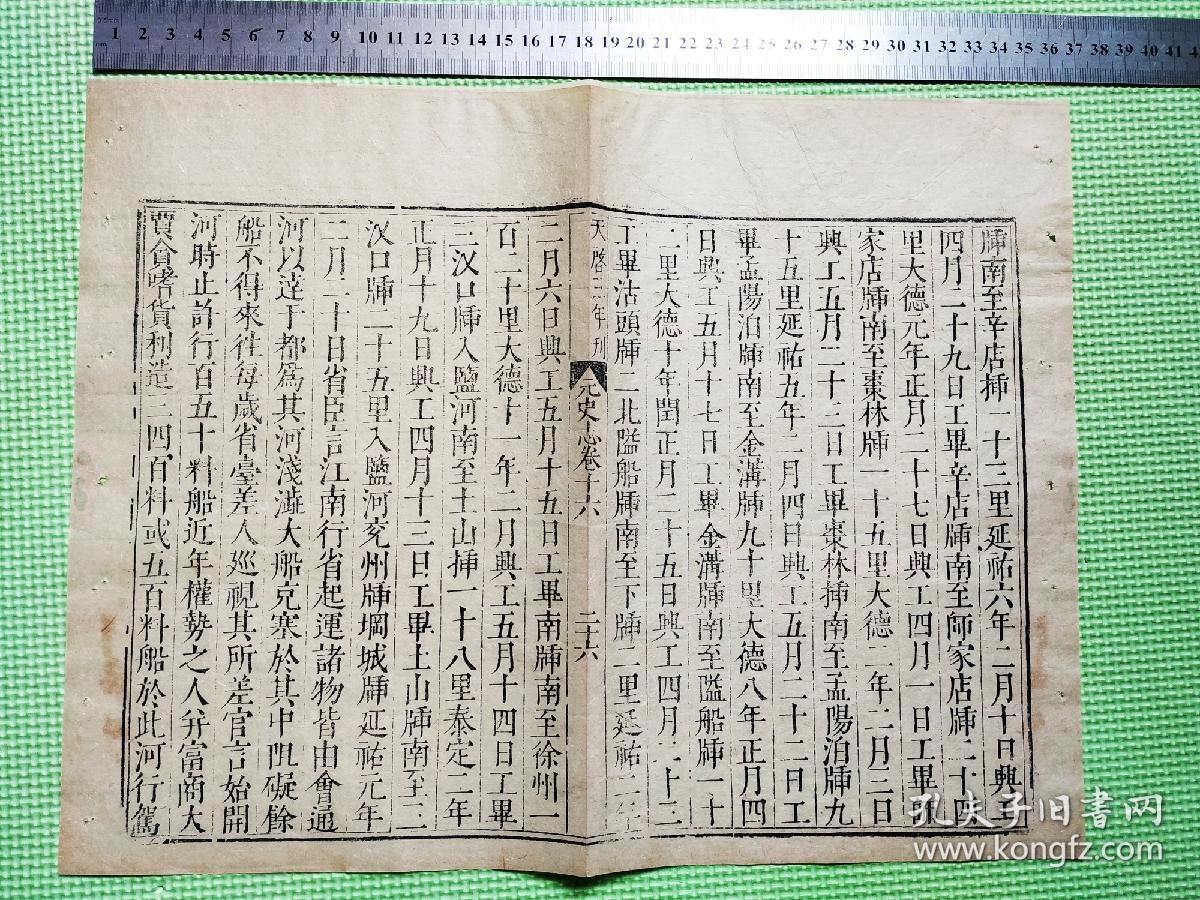 牐南至辛店挿一十三里延祐六年二月十日興工
四月二十九日工畢辛店牐南至師家店牐二十四
里大德元年正月二十七日興工四月一日工畢師
家店牐南至棗林牐一十五里大德二年二月三日
興工五月二十三日工畢棗林挿南至孟陽泊牐九
十五里延祐五年二月四日興工五月二十二日工
畢孟陽泊牐南至金溝牐九十里大德八年正月四
日興工五月十七日工畢金溝牐南至隘船牐一十
二里大德十年閏正月二十五日興工四月二十三
工畢沽頭牐二北隘船牐南至下牐二里延祐二年
天啓三年刊
元史志卷十六
二十六
二月六日興工五月十五日工畢南牐南至徐州一
百二十里大德十一年二月興工五月十四日工畢
三汊口牐入鹽河南至土山挿一十八里泰定二年
正月十九日興工四月十三日工畢土山牐南至三
汊口牐二十五里入鹽河兗州牐堈城牐延祐元年
二月二十日省臣言江南行省起運諸物皆由會通
河以逹于都爲其河淺澁大船充塞於其中阻礙餘
船不得來往每歲省臺差人廵視其所差官言始開
河時止許行百五十料船近年權勢之人并富商大
賈貪嗜貨利造三四百料或五百料船於此河行駕
孔夫子旧书网
www.kongfz.com
0.5mm
mm
1 2 3 4 5 6 7 8 9 10 11 12 13 14 15 16 17 18 19 20 21 22 23 24 25 26 27 28 29 30 31 32 33 34 35 36 37 38 39 40 41